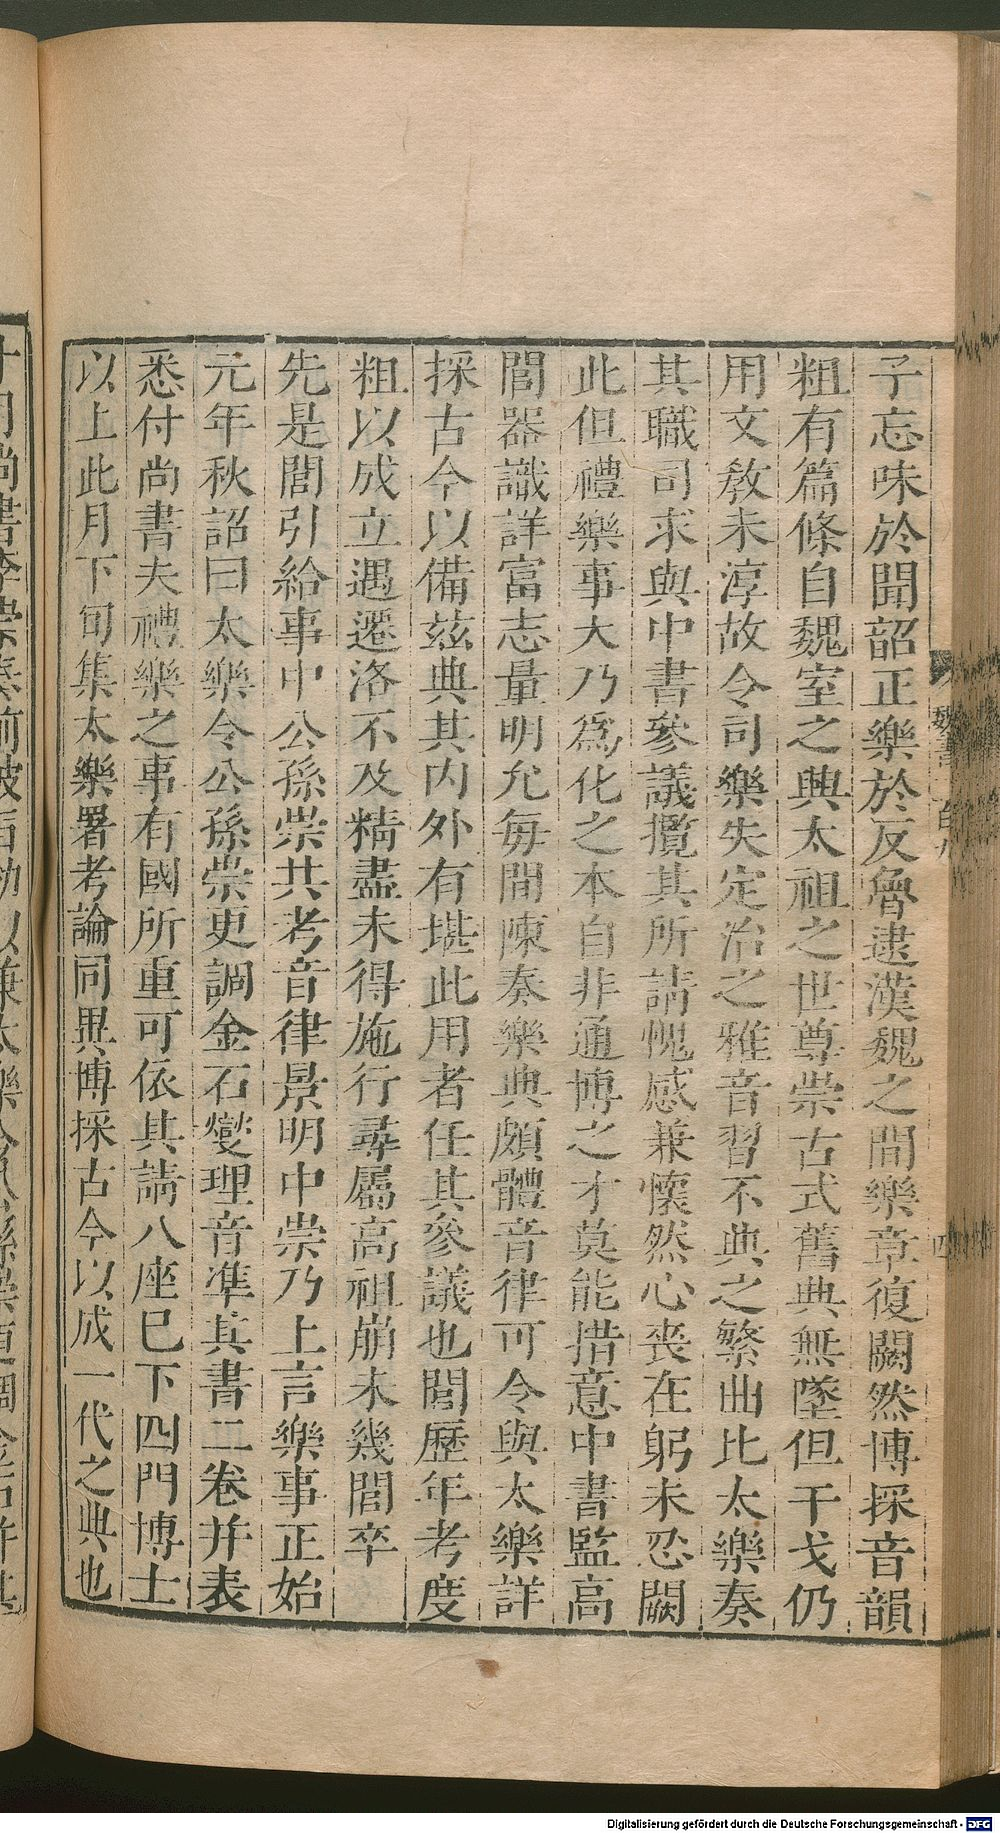 子忘味於聞韶正樂於反魯逮漢魏之間樂章復闕然博採音韻
粗有篇條自魏室之興太祖之世尊崇古式舊典無墜但干戈仍
用文敎未淳故令司樂失定治之雅音習不典之繁曲比太樂奏
其職司求與中書參議攬其所請愧感兼懷然心喪在躬未忍闕
此但禮樂事大乃爲化之本自非通博之才莫能措意中書監高
閭器識詳富志量明允每間陳奏樂典頗體音律可令與太樂詳
採古今以備玆典其内外有堪此用者任其參議也閭歷年考度
粗以成立遇遷洛不及精盡未得施行尋屬高祖崩未幾閭卒
先是閭引給事中公孫崇共考音律景明中崇乃上言樂事正始
元年秋詔曰太樂令公孫崇更調金石燮理音准其書二卷并表
悉付尚書夫禮樂之事有國所重可依其請八座巳下四門博士
以上此月下旬集太樂署考論同異博採古今以成一代之典也
魏書 百九
四
十月尚書李崇奏前被旨勅以兼太樂令公孫崇更調金石并其
Digitalisierung gefördert durch die Deutsche Forschungsgemeinschaft - DFG